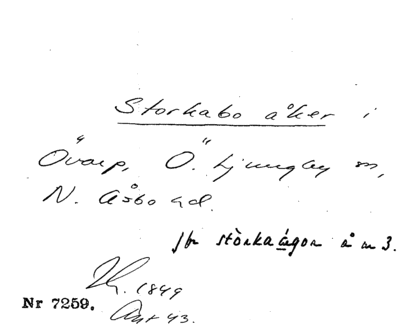 Storkabo åker i
Övarp, Ö. Ljungby sn,
N. Åsbo hd.
jfr storkaägor å n 3.
1849
Nr 7259.
Ant 43.